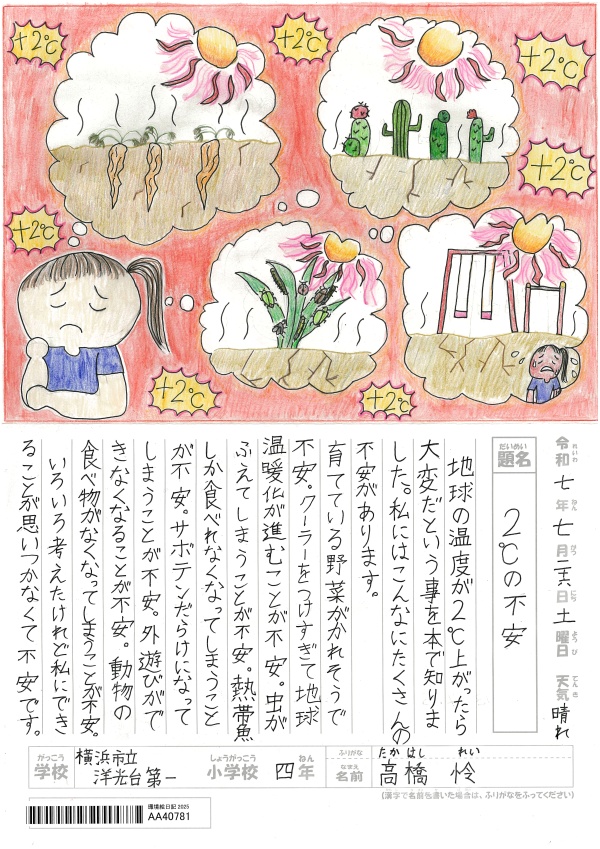 +2℃
+2℃
+2℃
+2℃
+2℃
+2℃
+2℃
令和七年七月二六日土曜日 天気 晴れ
れいわ ねん がつ にち ようび てんき
だいめい
題名
2℃の不安
地球の温度が2℃上がったら
大変だという事を本で知りま
した。私にはこんなにたくさんの
不安があります。
育てている野菜がかれそうで
不安。クーラーをつけすぎて地球
温暖化が進むことが不安。虫が
ふえてしまうことが不安。熱帯魚
しか食べれなくなってしまうこと
が不安。サボテンだらけになって
しまうことが不安。外遊びがで
きなくなることが不安。動物の
食べ物がなくなってしまうことが不安。
いろいろ考えたけれど私にでき
ることが思いつかなくて不安です。
がっこう
学校
横浜市立
洋光台第一
しょうがっこう
小学校
四
ねん
年
ふりがな
たかはし れい
なまえ
名前
高橋 怜
(漢字で名前を書いた場合は、ふりがなをふってください)
環境絵日記 2025
AA40781